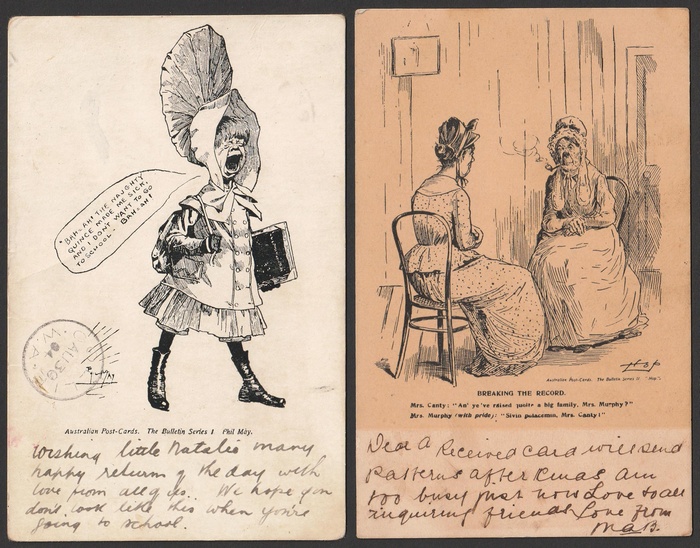 "BAH-AH! THE NAUGHTY
QUINCE MADE ME SICK,
AND I DON'T WANT TO GO
TO SCHOOL. BAH-AH!
AU 30
04
W.A.
Phil May
Australian Post-Cards. The Bulletin Series 1 Phil May.
Wishing little Natalie many
happy returns of the day with
love from all of us. We hope you
don't look like this when you're
going to school.
Australian Post-Cards. The Bulletin Series II "Hop".
BREAKING THE RECORD.
Mrs. Canty: "An' ye've raised quoite a big family, Mrs. Murphy?"
Mrs. Murphy (with pride): "Sivin polacemin, Mrs. Canty!"
Dear A Received card will send
patterns after Xmas am
too busy just now Love to all
inquiring friends Love from